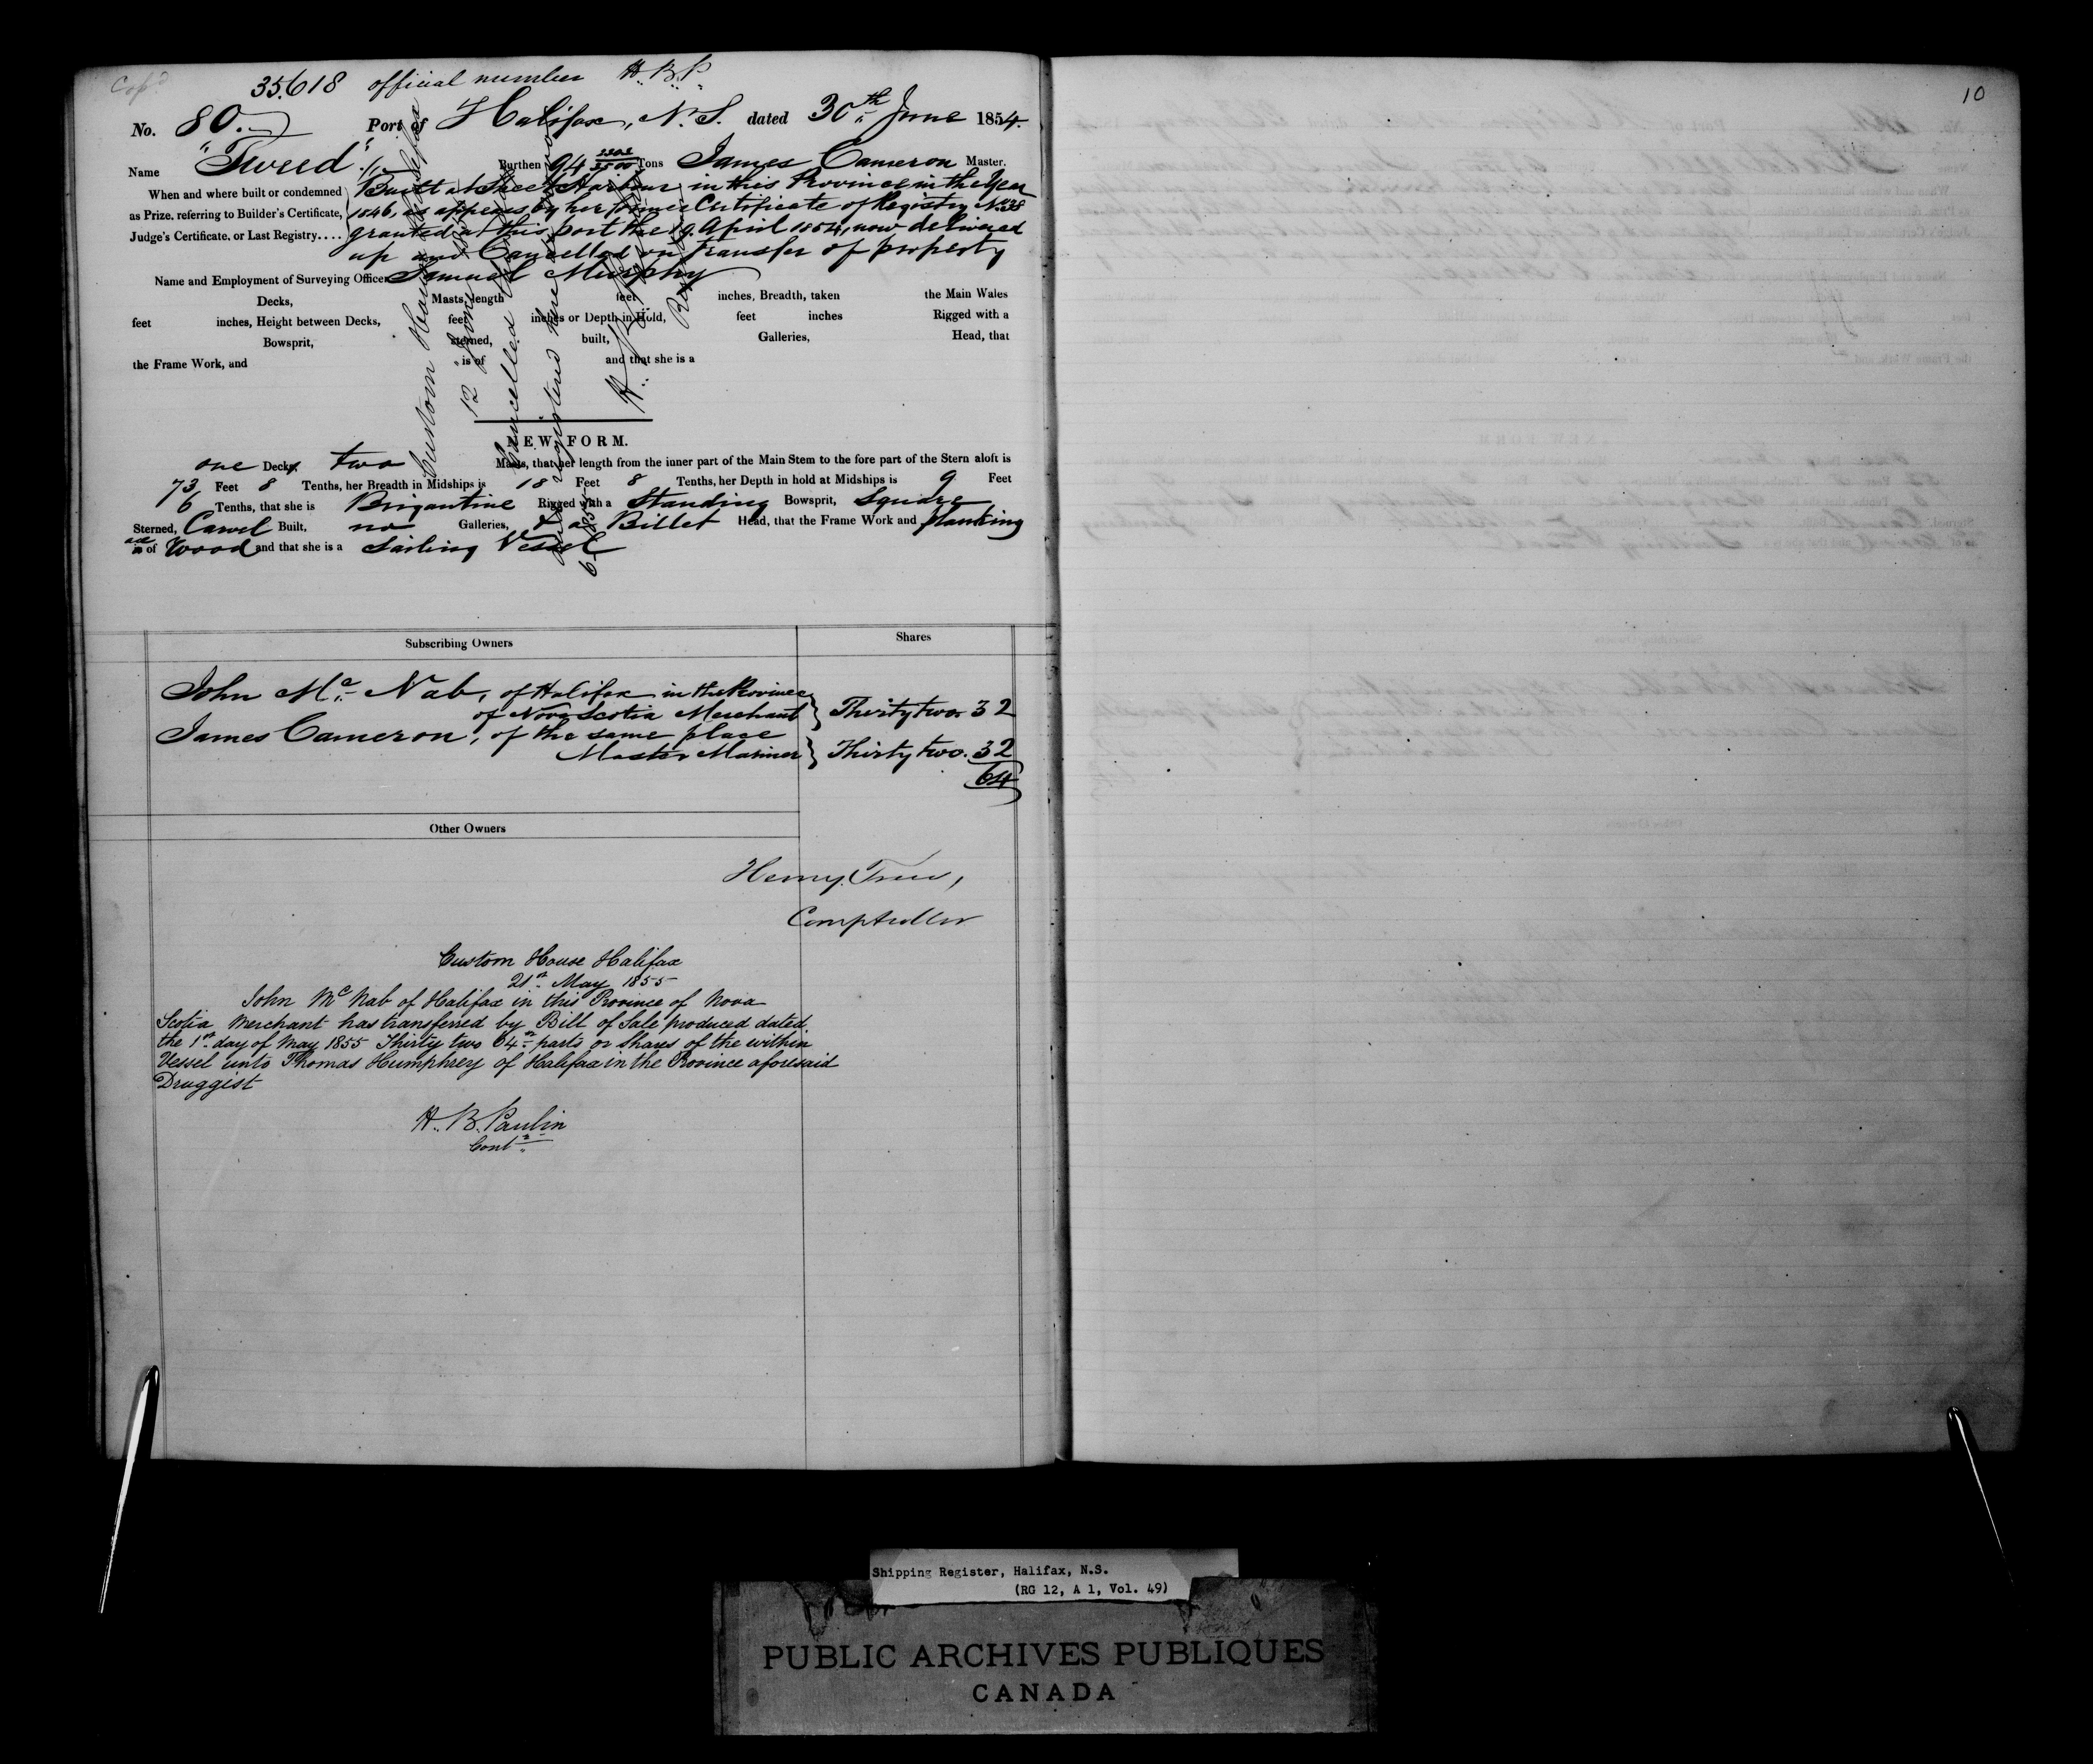 Cop^d
35.618 official number H.B.P.
No. 80. Port of Halifax, N.S. dated 30th June 1854.
Name "Tweed" Burthen 94 2302/3500 Tons James Cameron Master.
When and where built or condemned as Prize, referring to Builder's Certificate, Judge's Certificate, or Last Registry....
Built at Sheet Harbour in this Province in the Year
1846, as appears by her former Certificate of Registry No. 38
granted at this port the 19 April 1854, now delivered
up and Cancelled on transfer of property
Name and Employment of Surveying Officer Samuel Murphy
Decks, Masts, length feet inches, Breadth, taken the Main Wales
feet inches, Height between Decks, feet inches or Depth in Hold, feet inches Rigged with a
Bowsprit, sterned, built, Galleries, Head, that
the Frame Work, and is of and that she is a
NEW FORM.
one Deck, two Masts, that her length from the inner part of the Main Stem to the fore part of the Stern aloft is
73 Feet 8 Tenths, her Breadth in Midships is 18 Feet 8 Tenths, her Depth in hold at Midships is 9 Feet
6 Tenths, that she is Brigantine Rigged with a Standing Bowsprit, Square
Sterned, Carvel Built, no Galleries, & a Billet Head, that the Frame Work and planking
are of Wood and that she is a Sailing Vessel
Custom House Halifax
12 June
Cancelled
registered
1855
Subscribing Owners Shares
John Mc Nab, of Halifax in the Province
of Nova Scotia Merchant } Thirty two 32
James Cameron, of the same place
Master Mariner } Thirty two. 32
64
Other Owners
Henry Trew,
Comptroller
Custom House Halifax
21st May 1855
John Mc Nab of Halifax in this Province of Nova
Scotia Merchant has transferred by Bill of Sale produced dated
the 1st day of May 1855 Thirty two 64th parts or Shares of the within
Vessel unto Thomas Humphrey of Halifax in the Province aforesaid
Druggist
H. B. Paulin
Contr
10
Shipping Register, Halifax, N.S.
(RG 12, A 1, Vol. 49)
PUBLIC ARCHIVES PUBLIQUES
CANADA